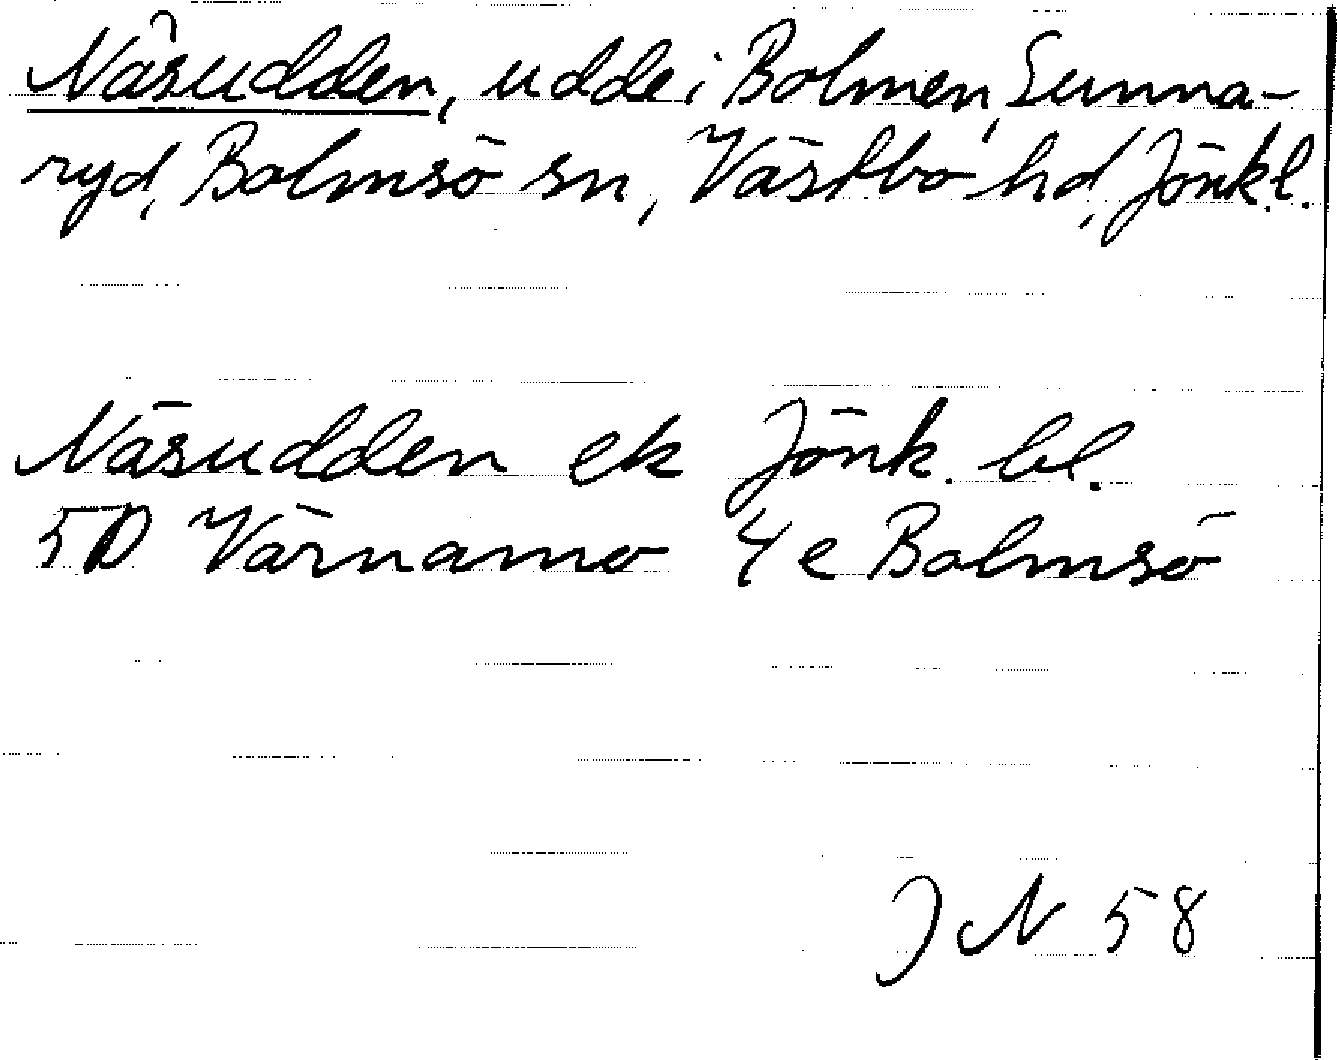 Näsudden, udde i Bolmen, Sunna-
ryd, Bolmsö sn, Västbo hd, Jönk.l.
Näsudden ek Jönk. bl.
5D Värnamo 4e Bolmsö
JN 58